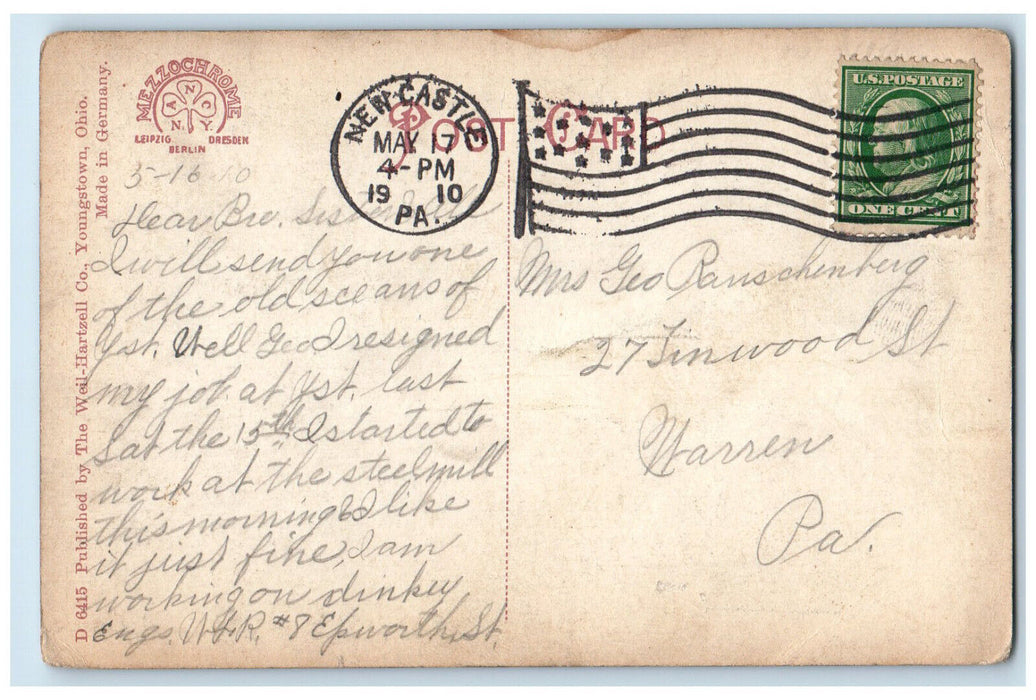 D 6415 Published by The Weil-Hartzell Co., Youngstown, Ohio.
Made in Germany.
MEZZOCHROME
A N C O
N. Y.
LEIPZIG DRESDEN
BERLIN
POST CARD
NEW CASTLE
MAY 17
4-PM
19 10
PA.
U.S. POSTAGE
ONE CENT
5-16-10
Dear Bro. Sister
I will send you one
of the old sceans of
Yst. Well Geo I resigned
my job at Yst. last
Sat the 15th I started to
work at the steel mill
this morning & I like
it just fine, I am
working on dinkey
Engs. W.J.R. #8 Epworth St.
Mrs Geo Rauschenberg
27 Linwood St
Warren
Pa.